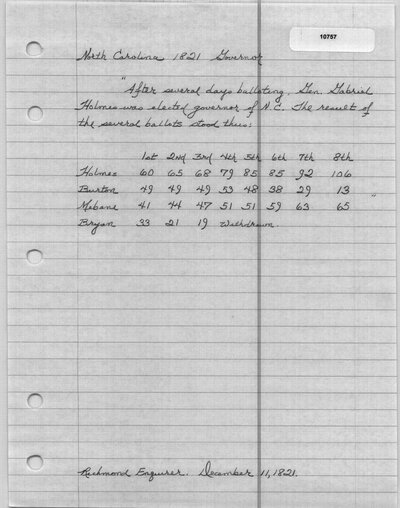 10757
North Carolina 1821 Governor
"After several days balloting, Gen. Gabriel
Holmes was elected governor of N.C. The result of
the several ballots stood thus:
1st 2nd 3rd 4th 5th 6th 7th 8th
Holmes 60 65 68 79 85 85 92 106
Burton 49 49 49 53 48 38 29 13
Mebane 41 44 47 51 51 59 63 65 "
Bryan 33 21 19 Withdrawn.
Richmond Enquirer. December 11, 1821.